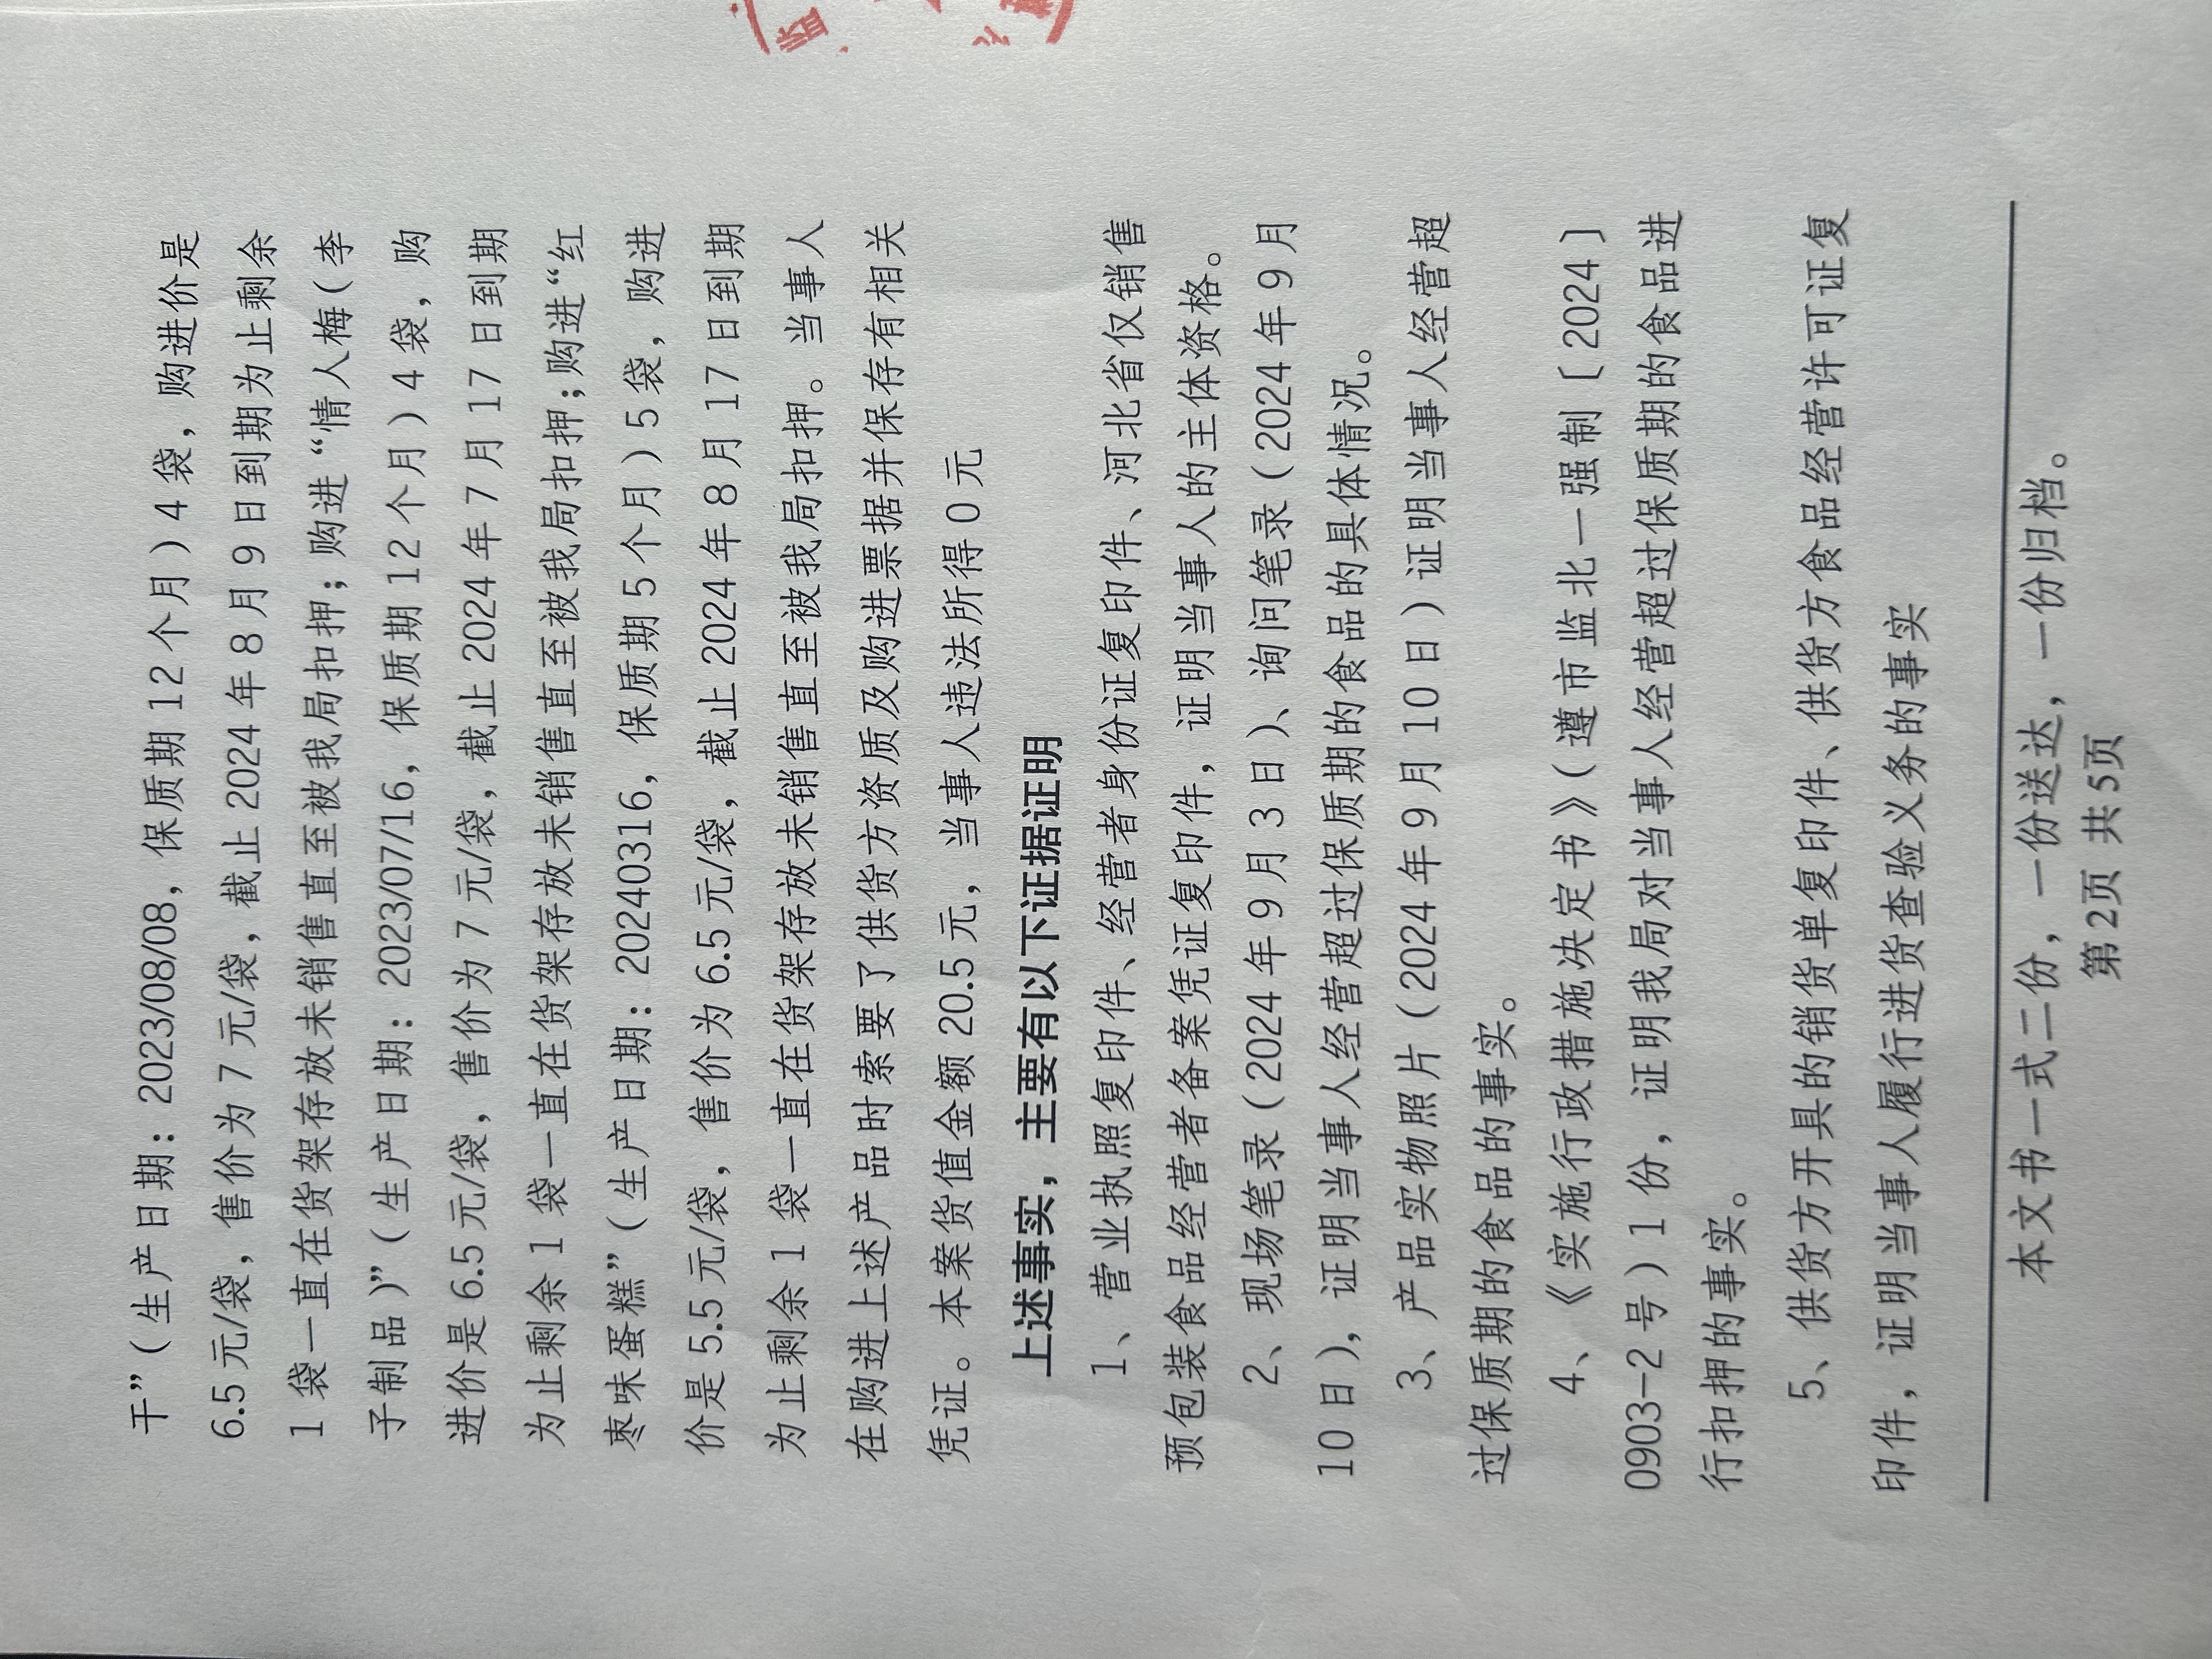 监
干”（生产日期：2023/08/08，保质期 12 个月）4 袋，购进价是
6.5 元/袋，售价为 7 元/袋，截止 2024 年 8 月 9 日到期为止剩余
1 袋一直在货架存放未销售直至被我局扣押；购进“情人梅（李
子制品）”（生产日期：2023/07/16，保质期 12 个月）4 袋，购
进价是 6.5 元/袋，售价为 7 元/袋，截止 2024 年 7 月 17 日到期
为止剩余 1 袋一直在货架存放未销售直至被我局扣押；购进“红
枣味蛋糕”（生产日期：20240316，保质期 5 个月）5 袋，购进
价是 5.5 元/袋，售价为 6.5 元/袋，截止 2024 年 8 月 17 日到期
为止剩余 1 袋一直在货架存放未销售直至被我局扣押。当事人
在购进上述产品时索要了供货方资质及购进票据并保存有相关
凭证。本案货值金额 20.5 元，当事人违法所得 0 元
上述事实，主要有以下证据证明
1、营业执照复印件、经营者身份证复印件、河北省仅销售
预包装食品经营者备案凭证复印件，证明当事人的主体资格。
2、现场笔录（2024 年 9 月 3 日）、询问笔录（2024 年 9 月
10 日），证明当事人经营超过保质期的食品的具体情况。
3、产品实物照片（2024 年 9 月 10 日）证明当事人经营超
过保质期的食品的事实。
4、《实施行政措施决定书》（遵市监北一强制〔2024〕
0903-2 号）1 份，证明我局对当事人经营超过保质期的食品进
行扣押的事实。
5、供货方开具的销货单复印件、供货方食品经营许可证复
印件，证明当事人履行进货查验义务的事实
本文书一式二份，一份送达，一份归档。
第 2页 共 5页